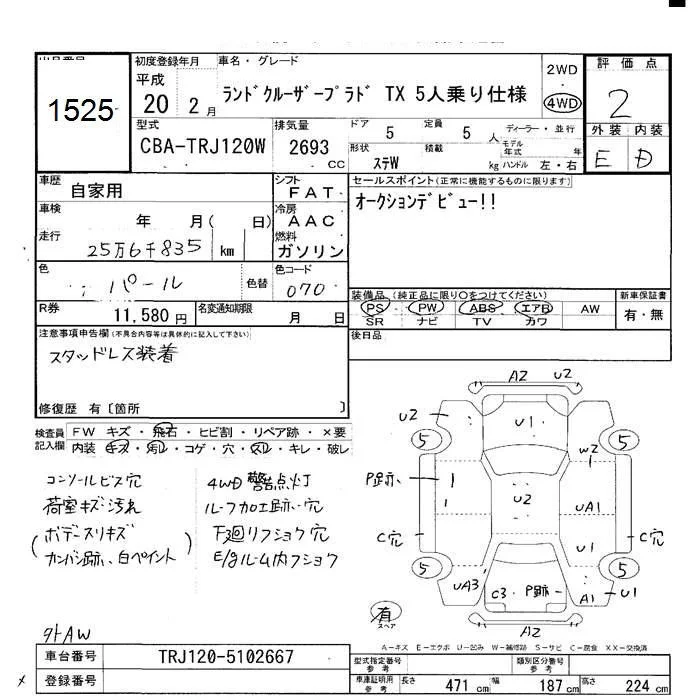 初度登録年月
車名・グレード
評価点
1525
平成
20 2月
ランドクルーザープラド TX 5人乗り仕様
2WD
4WD
2
外装 内装
E D
型式
CBA-TRJ120W
排気量
2693
CC
ドア
5
定員
5
人
形状
ステW
積載
kg
ディーラー・並行
モデル年式
年
ハンドル 左・右
車歴
自家用
シフト
FAT
セールスポイント(正常に機能するものに限ります)
オークションデビュー!!
車検
年 月( 日)
冷房
AAC
走行
25万6千835
km
燃料
ガソリン
色
パール
色替
色コード
070
装備品(純正品に限り○をつけてください)
新車保証書
PS PW ABS エアB AW
SR ナビ TV カワ
有・無
R券
11,580円
名変通知期限
月 日
後日品
注意事項申告欄(不具合内容等は具体的に記入して下さい)
スタッドレス装着
修復歴 有〔箇所 〕
検査員記入欄
FW キズ・飛石・ヒビ割・リペア跡・×要
内装 キズ・汚レ・コゲ・穴・スレ・キレ・破レ
コンソールビス穴
荷室キズ汚れ
(ボデースリキズ
カンバン跡、白ペイント)
4WD警告点灯
ルーフ加工跡・穴
下廻リフショク穴
E/gルーム内フショク
外AW
A2 U2
U2 U1
5 5
W2
P跡、
U2
UA1
C穴 C穴
U1
5 5
UA3
C3 P跡
A1 U1
有
スペア
A2
A-キズ E-エクボ U-凹み W-補修跡 S-サビ C-腐食 XX-交換済
車台番号
TRJ120-5102667
登録番号
型式指定番号
参考
類別区分番号
参考
車庫証明用
参考
長さ 471 cm 幅 187 cm 高さ 224 cm